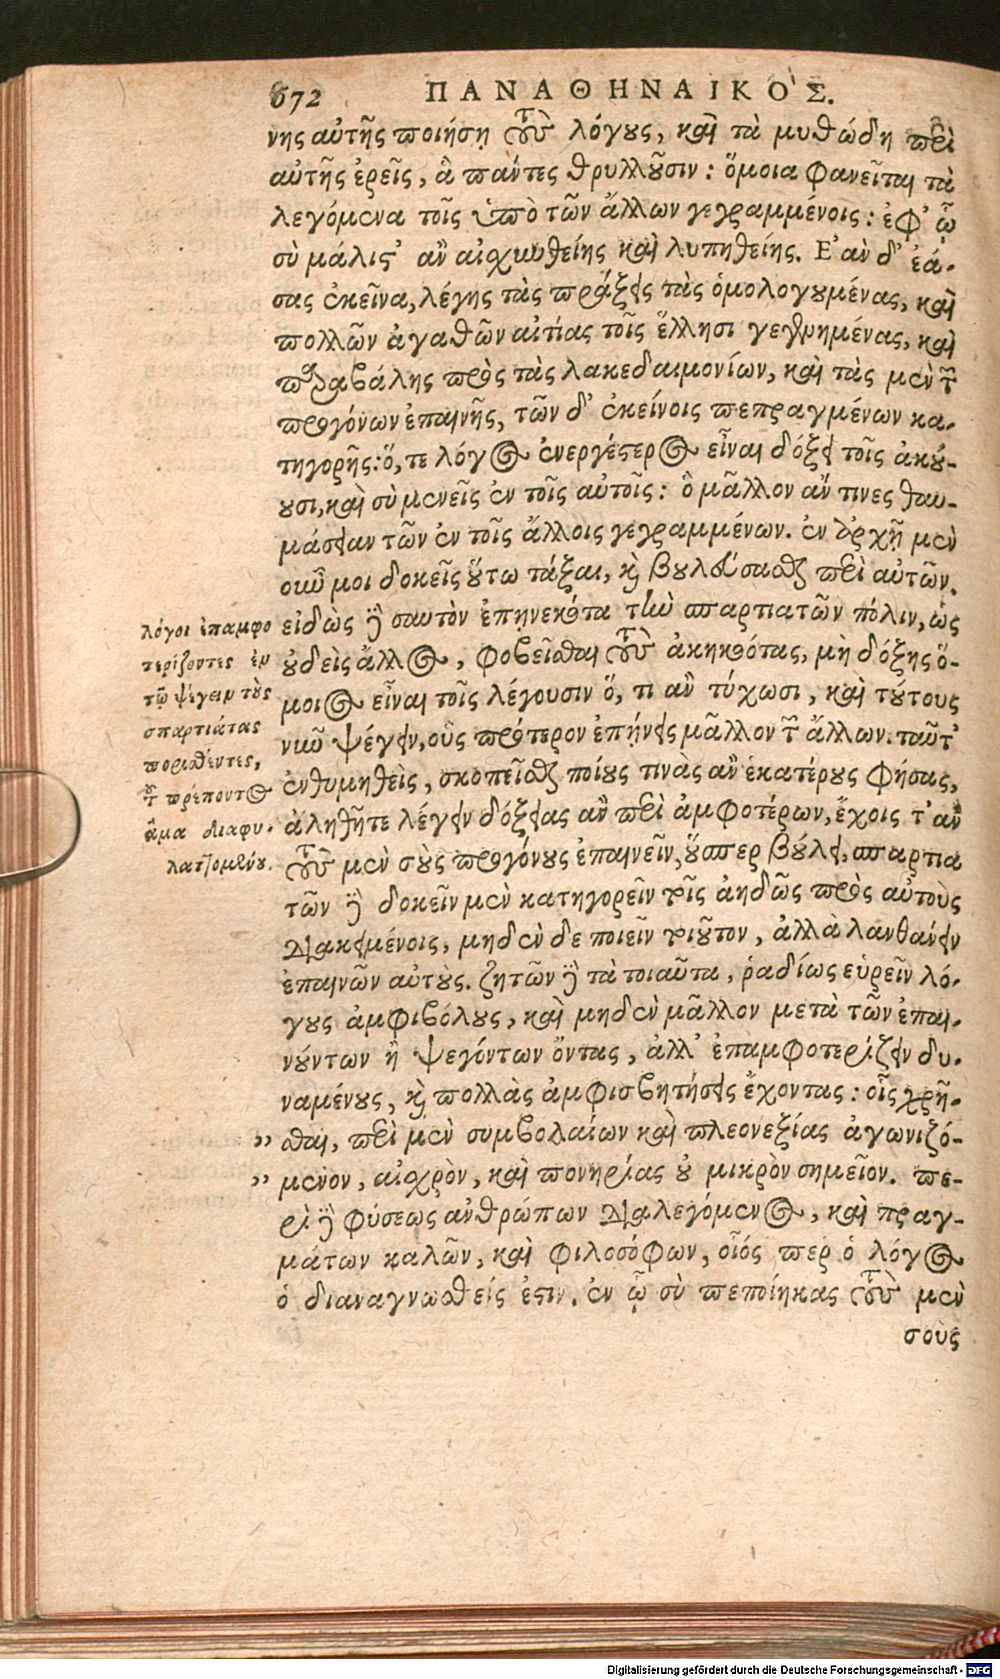 672 ΠΑΝΑΘΗΝΑΙΚΟ'Σ.
νης αὐτῆς ποιήσῃ τοὺς λόγους, καὶ τὰ μυθώδη περὶ
αὐτῆς ἐρεῖς, ἃ πάντες θρυλλοῦσιν: ὅμοια φανεῖται τὰ
λεγόμενα τοῖς ὑπὸ τῶν ἄλλων γεγραμμένοις: ἐφ' ᾧ
σὺ μάλιστ' ἂν αἰσχυνθείης καὶ λυπηθείης. Ε'ὰν δ' ἐά-
σας ἐκεῖνα, λέγης τὰς πράξεις τὰς ὁμολογουμένας, καὶ
πολλῶν ἀγαθῶν αἰτίας τοῖς ἕλλησι γεγενημένας, καὶ
παραβάλης πρὸς τὰς λακεδαιμονίων, καὶ τὰς μὲν τῶν
προγόνων ἐπαινῆς, τῶν δ' ἐκείνοις πεπραγμένων κα-
τηγορῆς: ὅ, τε λόγος ἐνεργέστερος εἶναι δόξει τοῖς ἀκού-
ουσι, καὶ σὺ μενεῖς ἐν τοῖς αὐτοῖς: ὃ μᾶλλον ἄν τινες θαυ-
μάσειαν τῶν ἐν τοῖς ἄλλοις γεγραμμένων. ἐν ἀρχῇ μὲν
οὖν μοι δοκεῖς οὕτω τάξαι, καὶ βουλεύσασθαι περὶ αὐτῶν.
εἰδὼς δὲ σαυτὸν ἐπῃνεκότα τὴν σπαρτιατῶν πόλιν, ὡς
οὐδεὶς ἄλλος, φοβεῖσθαι τοὺς ἀκηκοότας, μὴ δόξης ὅ-
μοιος εἶναι τοῖς λέγουσιν ὅ, τι ἂν τύχωσι, καὶ τούτους
νῦν ψέγειν, οὓς πρότερον ἐπῄνεις μᾶλλον τῶν ἄλλων. ταῦτ'
ἐνθυμηθεὶς, σκοπεῖσθαι ποίους τινας ἂν ἑκατέρους φήσας,
ἀληθῆ τε λέγειν δόξειας ἂν περὶ ἀμφοτέρων, ἔχοις τ' ἂν
τοὺς μὲν σοὺς προγόνους ἐπαινεῖν, οὕσπερ βούλει, σπαρτια
τῶν δὲ δοκεῖν μὲν κατηγορεῖν τοῖς ἀηδῶς πρὸς αὐτοὺς
διακειμένοις, μηδὲν δε ποιεῖν τοιοῦτον, ἀλλὰ λανθάνειν
ἐπαινῶν αὐτούς. ζητῶν δὲ τὰ τοιαῦτα, ῥαδίως εὑρεῖν λό-
γους ἀμφιβόλους, καὶ μηδὲν μᾶλλον μετὰ τῶν ἐπαι-
νούντων ἢ ψεγόντων ὄντας, ἀλλ' ἐπαμφοτερίζειν δυ-
ναμένους, καὶ πολλὰς ἀμφισβητήσεις ἔχοντας: οἷς χρῆ-
" σθαι, περὶ μὲν συμβολαίων καὶ πλεονεξίας ἀγωνιζό-
" μενον, αἰσχρὸν, καὶ πονηρίας οὐ μικρὸν σημεῖον. πε-
ρὶ δὲ φύσεως ἀνθρώπων διαλεγόμενος, καὶ πραγ-
μάτων καλῶν, καὶ φιλοσόφων, οἷός περ ὁ λόγος
ὁ διαναγνωσθείς ἐστιν. ἐν ᾧ σὺ πεποίηκας τοὺς μὲν
σοὺς
λόγοι ἐπαμφο
τερίζοντες ἐν
τῷ ψέγειν τοὺς
σπαρτιάτας
πορισθέντες,
τοῦ πρέποντος
ἅμα διαφυ-
λαττομένου.
Digitalisierung gefördert durch die Deutsche Forschungsgemeinschaft - DFG